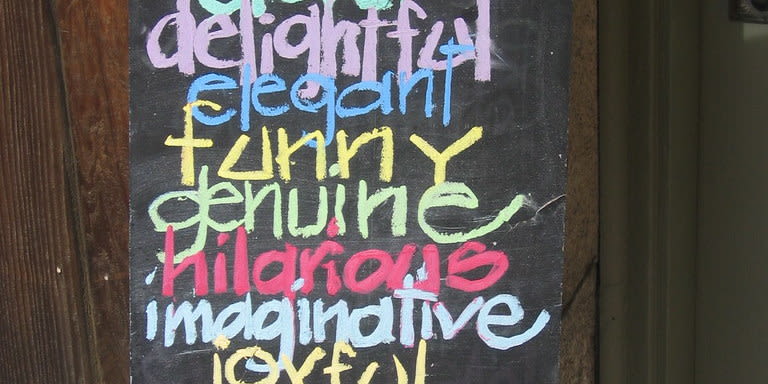 delightful
elegant
funny
genuine
hilarious
imaginative
joyful